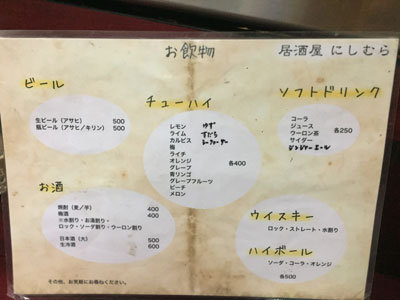 お飲物
居酒屋 にしむら
ビール
生ビール (アサヒ) 500
瓶ビール (アサヒ/キリン) 500
チューハイ
レモン ゆず
ライム すだち
カルピス シークワーサー
梅
ライチ
オレンジ
グレープ
青リンゴ
グレープフルーツ
ピーチ
メロン
各400
ソフトドリンク
コーラ
ジュース
ウーロン茶
サイダー
ジンジャーエール
各250
お酒
焼酎 (麦/芋) 400
梅酒 400
※水割り・お湯割り・
ロック・ソーダ割り・ウーロン割り
日本酒 (大) 500
生冷酒 600
ウイスキー
ロック・ストレート・水割り
ハイボール
ソーダ・コーラ・オレンジ
各500
その他、お気軽にお尋ねください。